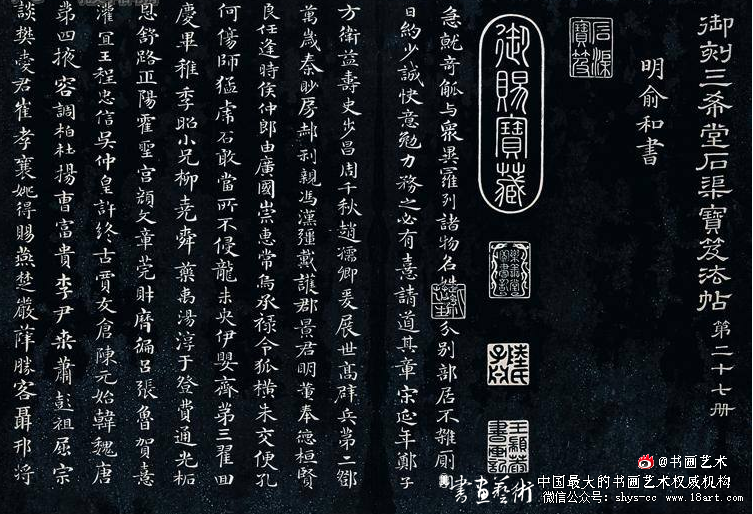 御刻三希堂石渠寶笈法帖 第二十七册
明俞和書
石渠寶笈
御賜寶藏
急就奇觚与衆異羅列諸物名姓字分別部居不雜厠
日約少誠快意勉力務之必有憙請道其章宗延年鄭子
方衛益壽史步昌周千秋趙孺卿爰展世高辟兵第二鄧
萬歲秦眇房郝利親馮漢彊戴護郡景君明董奉德桓賢
良任逢時侯仲郎由廣國崇惠常烏承禄令狐橫朱交便孔
何傷師猛虎石敢當所不侵龍未央伊嬰齊第三翟回
慶畢稚季昭小兄柳堯舜藥禹湯淳于登費通光柘
恩舒路正陽霍聖宮顏文章莞財齊徧呂張魯賀憙
灌宜王程忠信吳仲皇許終古賈友倉陳元始韓魏唐
第四掖容調柏杜揚曹富貴李尹桒蕭彭祖屈宗
談樊愛君崔孝襄姚得賜燕楚嚴薛勝客聶邗將
@书画艺术
書畫藝術
中国最大的书画艺术权威机构
微信公众号：shys-cc www.18art.com